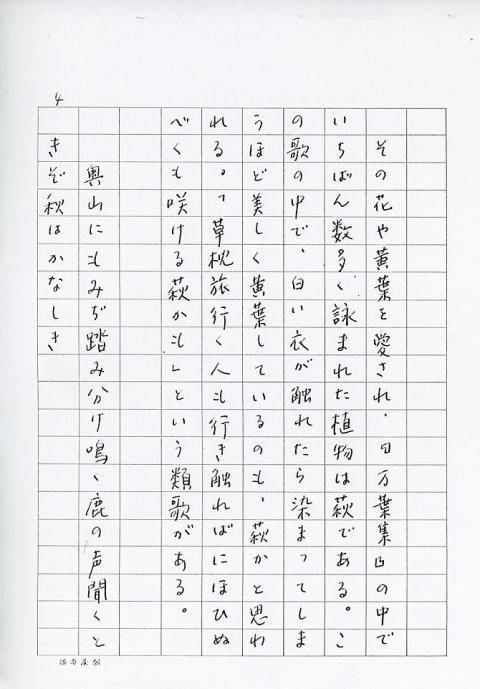 4
その花や黄葉を愛され、『万葉集』の中で
いちばん数多く詠まれた植物は萩である。こ
の歌の中で、白い衣が触れたら染まってしま
うほど美しく黄葉しているのも、萩かと思わ
れる。「草枕旅行く人も行き触ればにほひぬ
べくも咲ける萩かも」という類歌がある。
奥山にもみぢ踏み分け鳴く鹿の声聞くと
きぞ秋はかなしき